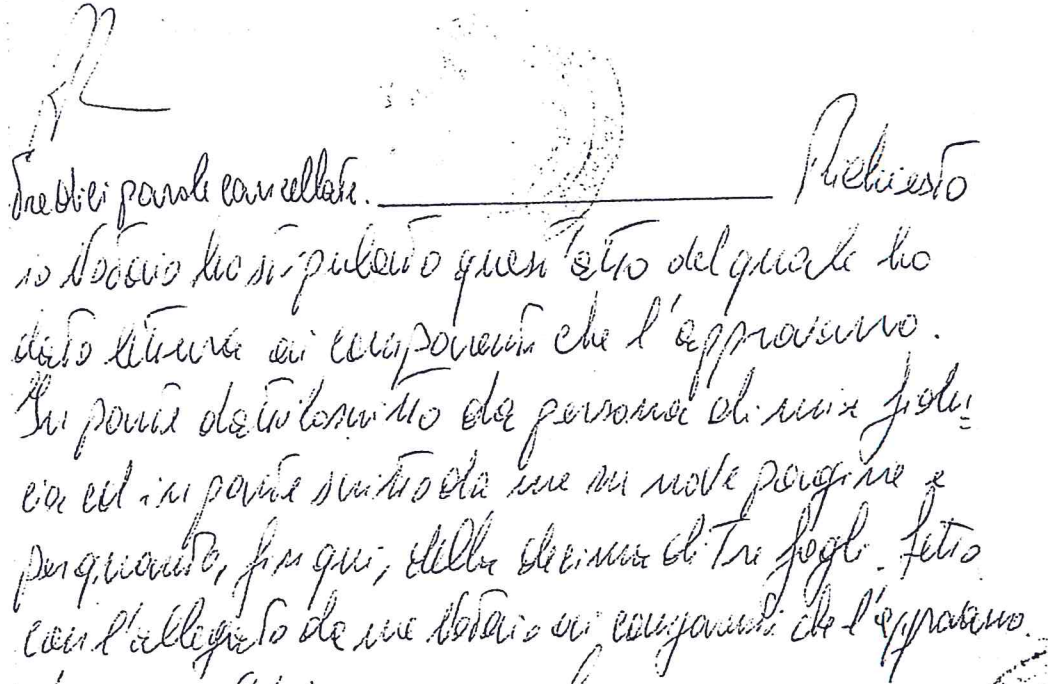 Tredici parole cancellate. Richiesto
io Notaio ho stipulato quest'atto del quale ho
dato lettura ai comparenti che l'approvano.
In parte dattiloscritto da persona di mia fidu=
cia ed in parte scritto da me su nove pagine e
per quanto, fin qui, della decima di tre fogli. Letto
con l'allegato da me Notaio ai comparenti che l'approvano.